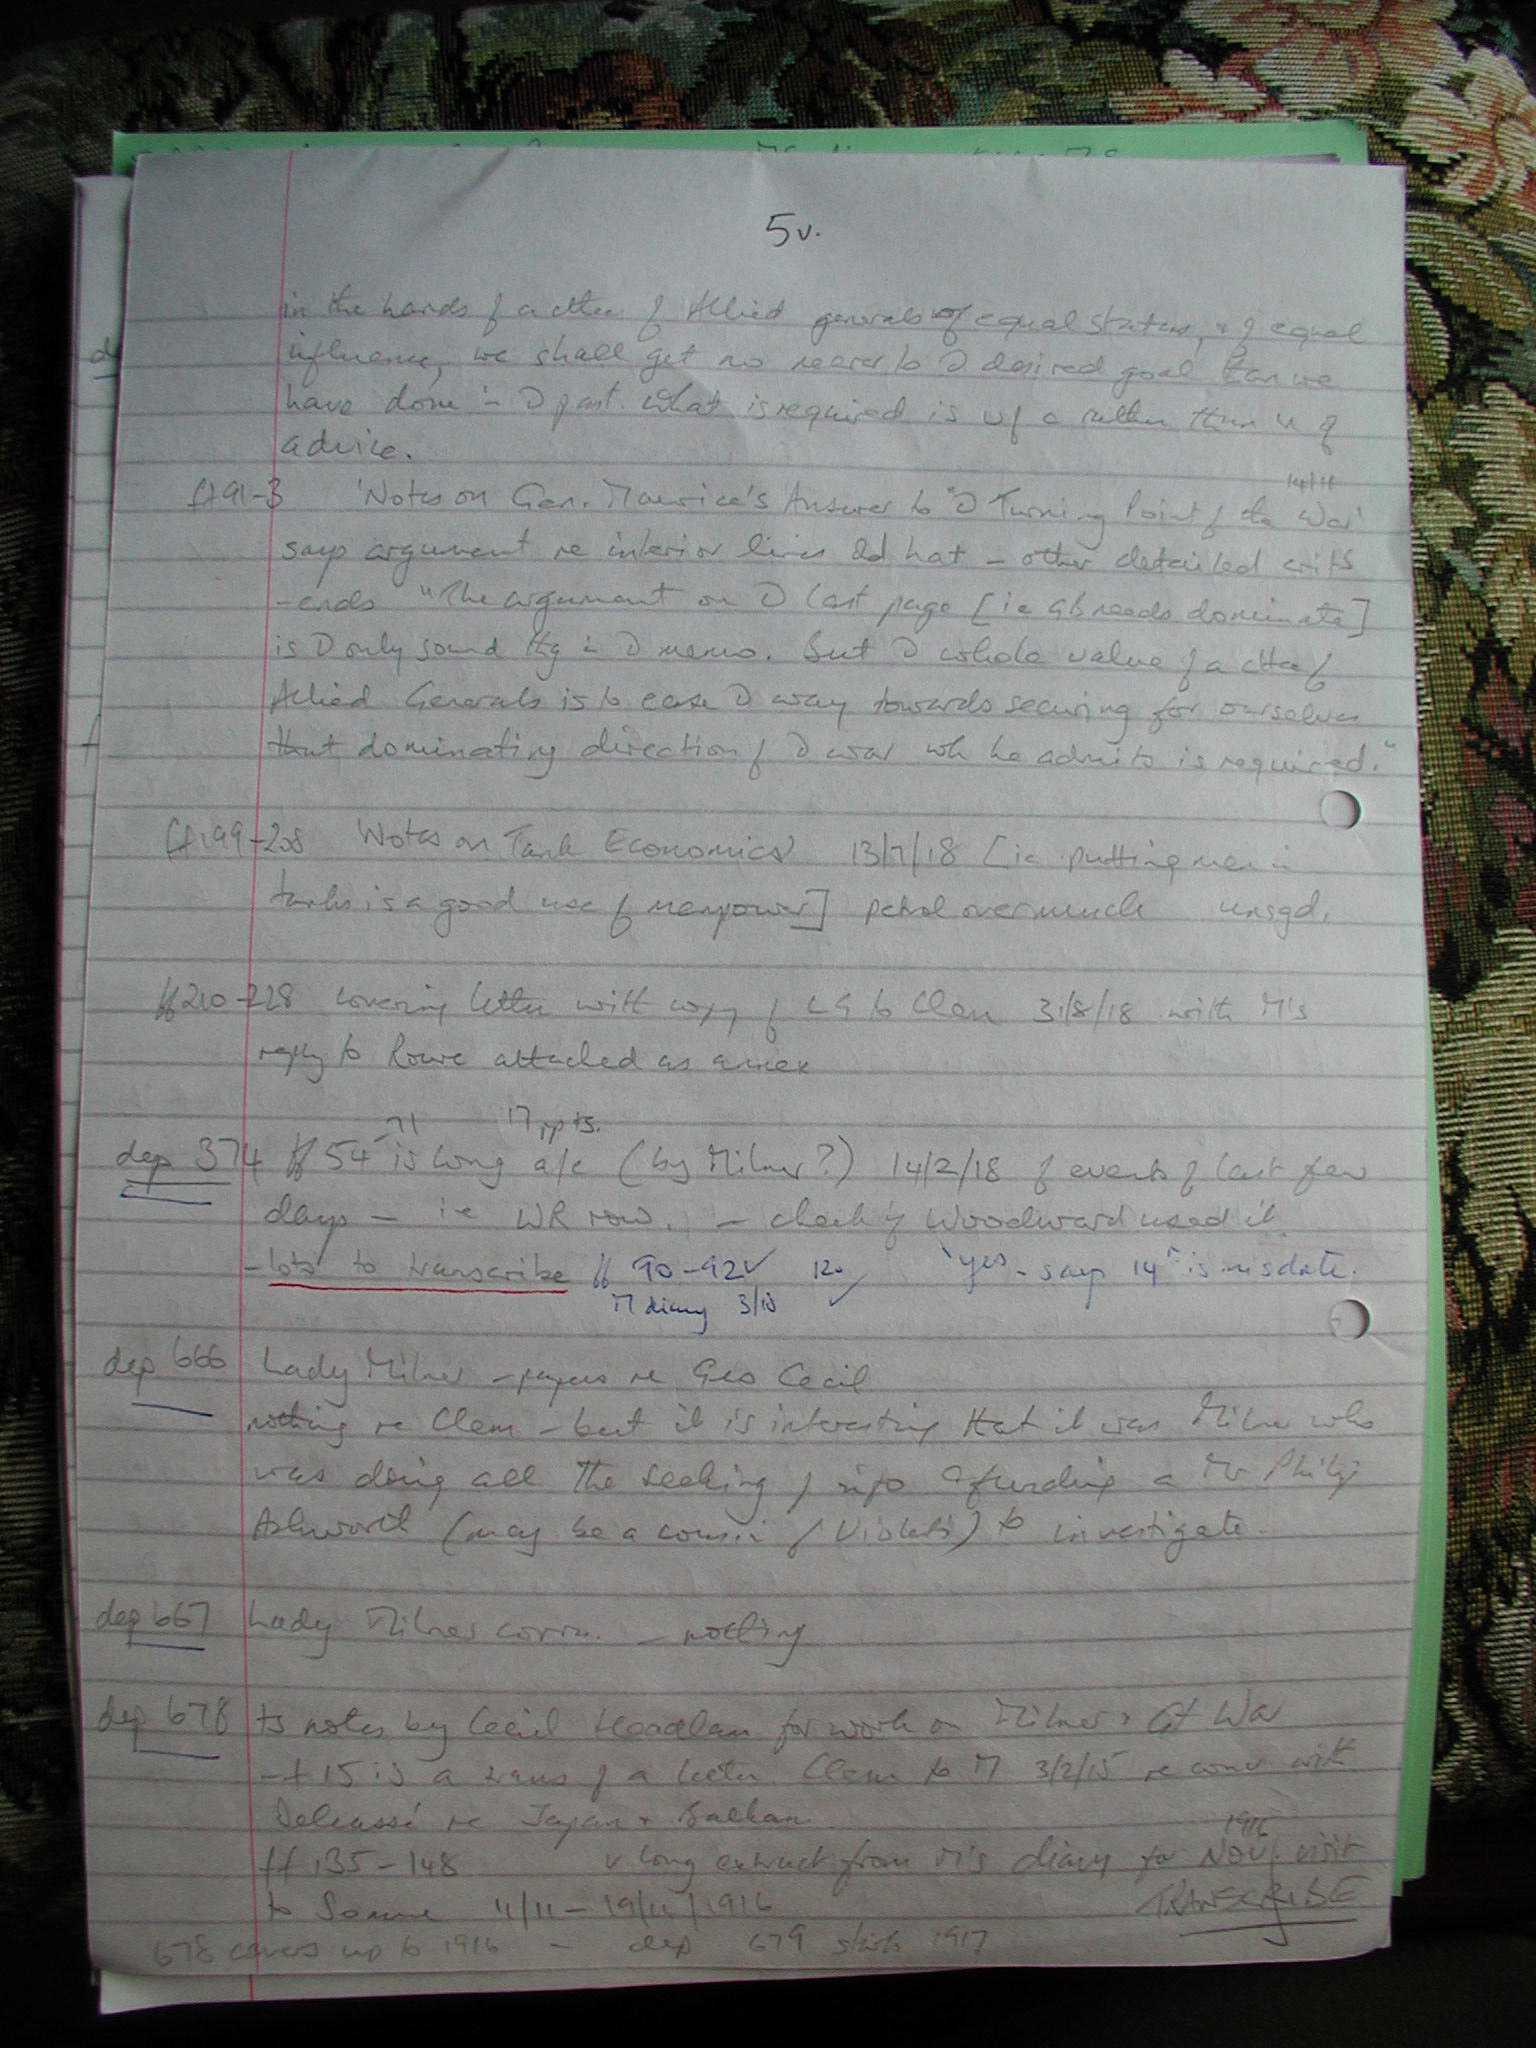 5v.
in the hands of a cttee of Allied generals of equal status, & of equal
influence, we shall get no nearer to D desired goal than we
have done in D past. What is required is u of c rather than u of
advice.
14/11
ff 91-3 'Notes on Gen. Maurice's Answer to "D Turning Point of the War'
says argument re interior lines old hat - other detailed crits
- ends "The argument on D last page [ie GB needs dominate]
is D only sound thg in D memo. But D whole value of a cttee of
Allied Generals is to ease D way towards securing for ourselves
that dominating direction of D war wh he admits is required."
ff 199-208 'Notes on Tank Economics' 13/7/18 [ie putting men in
tanks is a good use of manpower] petrol overmuch unsgd.
ff 210-228 covering letter with copy of LG to Clem 31/8/18 with M's
reply to Rowe attached as annex
-71 17 pp ts.
dep 374 ff 54 is long a/c (by Milner?) 14/2/18 of events of last few
days - ie WR row. - check if Woodward used it
- lots to transcribe ff 90-92 ✓ 120 'yes - says 14th is misdate.
M diary 3/18 ✓
dep 666 Lady Milner - papers re Geo Cecil
nothing re Clem - but it is interesting that it was Milner who
was doing all the seeking of info & funding a Mr Philip
Ashworth (may be a cousin of Violet's) to investigate.
dep 667 Lady Milner corrn. - nothing
dep 678 ts notes by Cecil Headlam for work on Milner & Gt War
- f 15 is a trans of a letter Clem to M 3/2/15 re conv with
Delcassé re Japan & Balkan
1916
ff 135-148 v long extract from M's diary for Nov visit
to Somme 11/11 - 19/11/1916 TRANSCRIBE
678 covers up to 1916 - dep 679 starts 1917